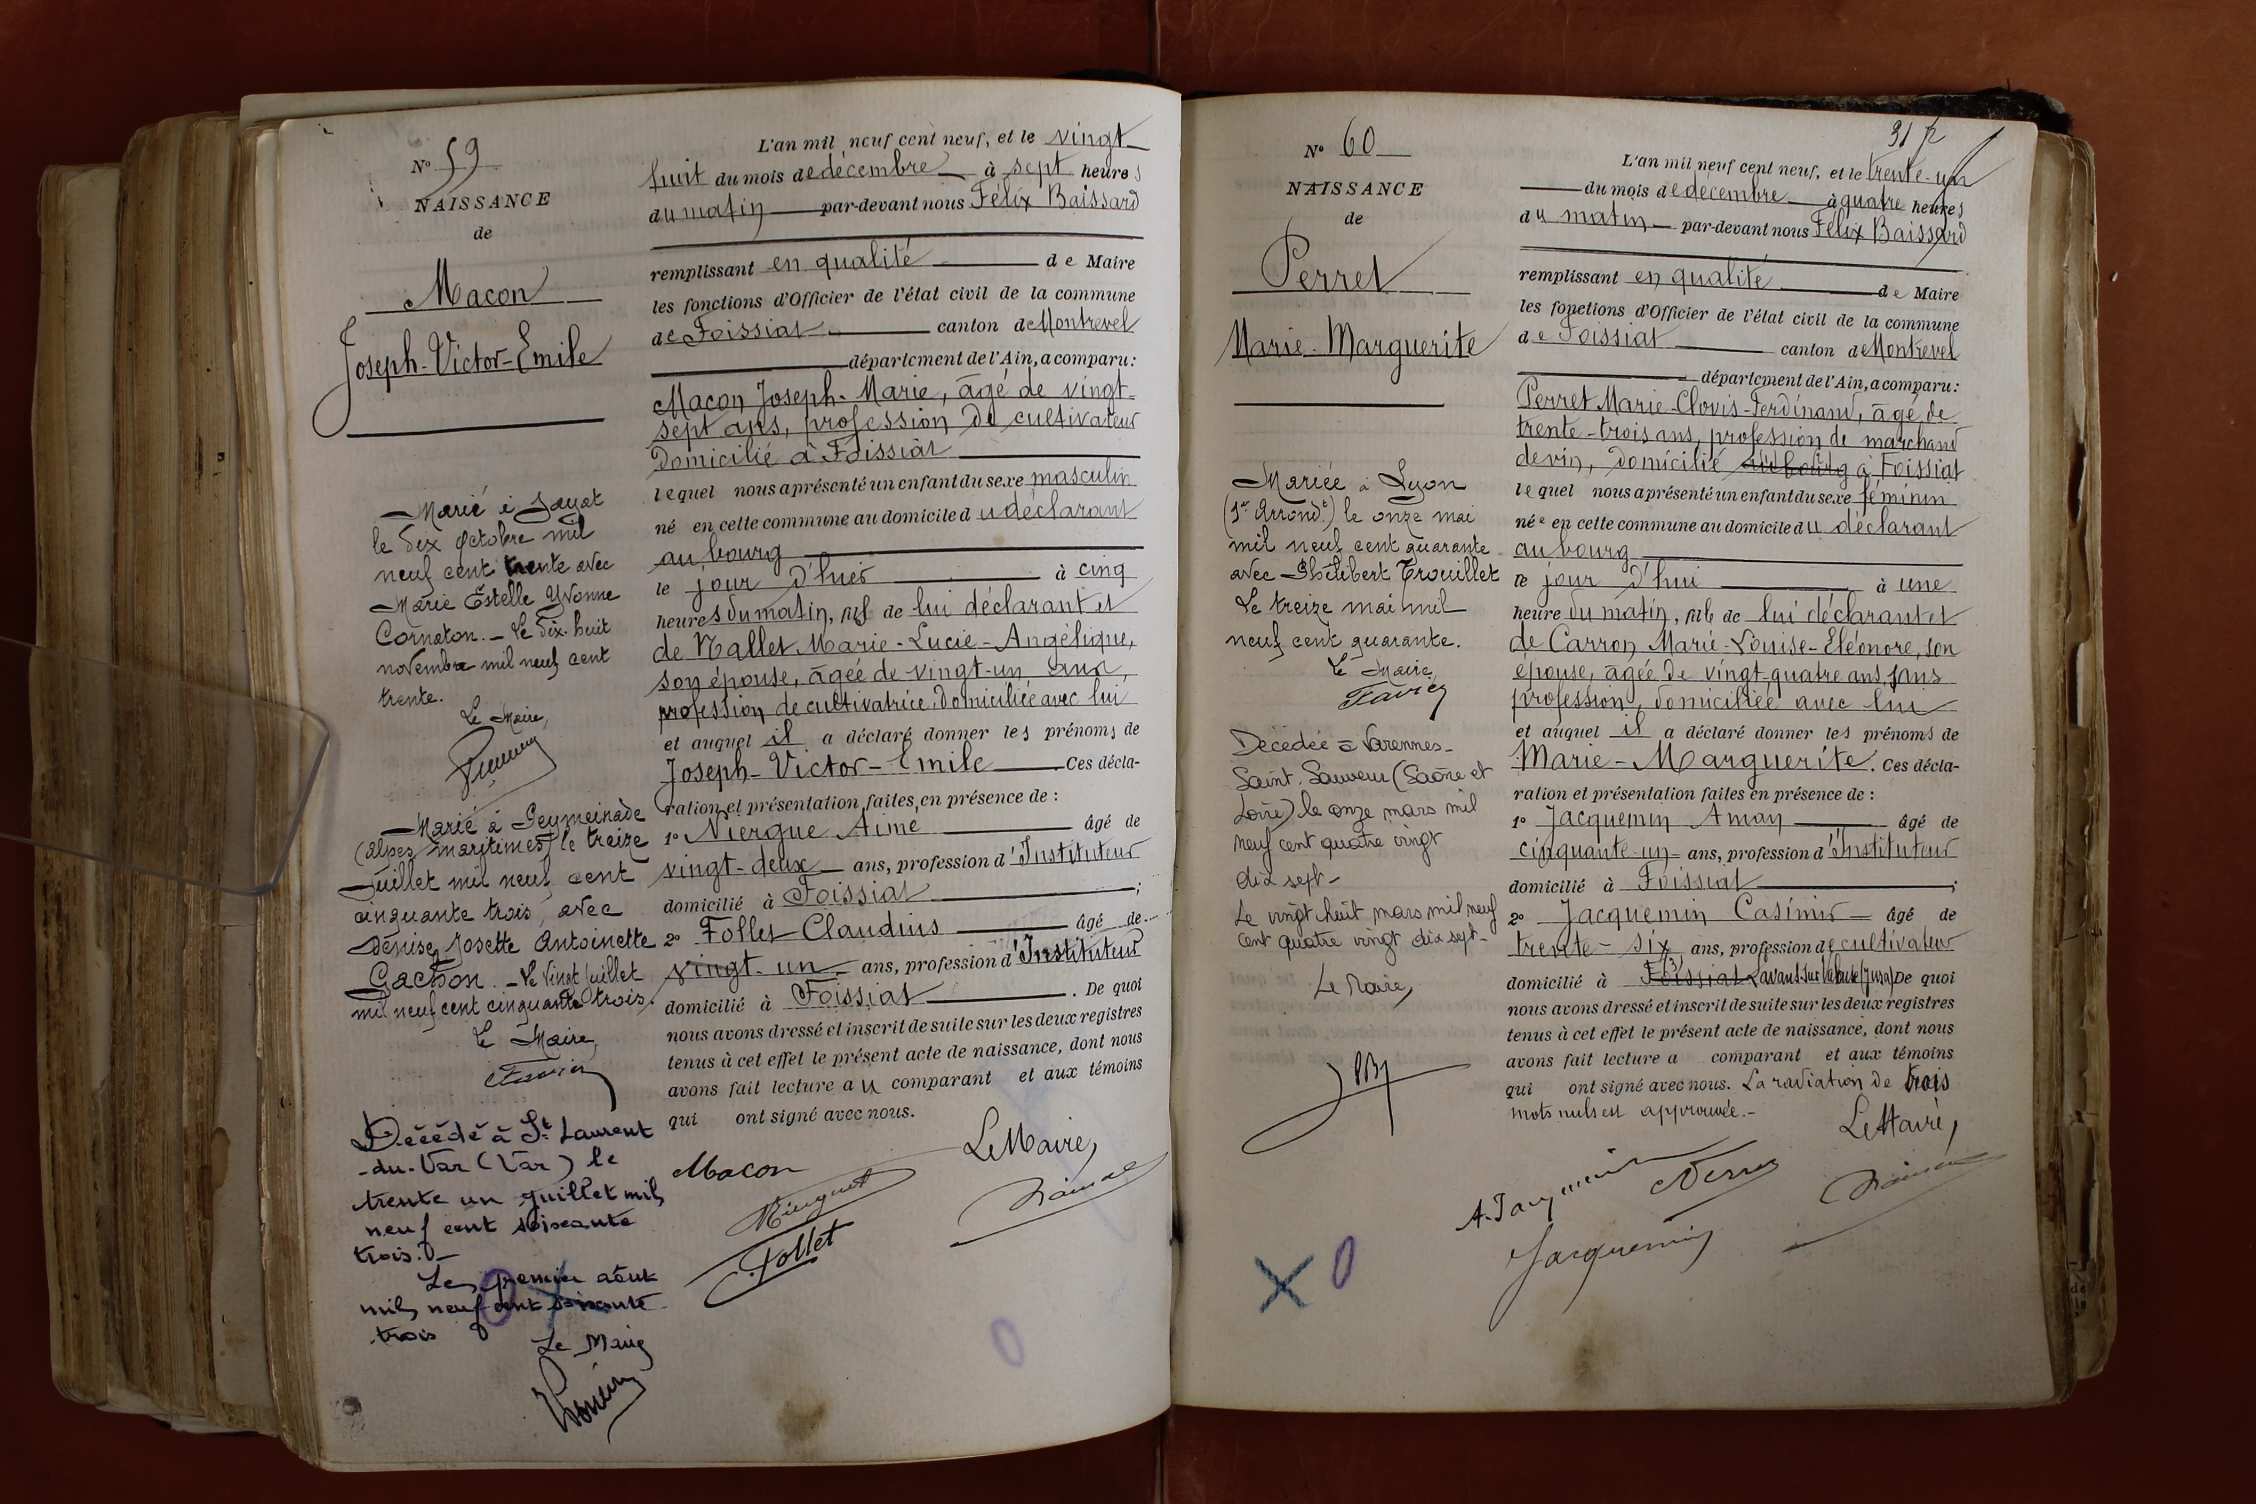 N° 59
NAISSANCE
de
Macon
Joseph-Victor-Emile
Marié à Jayat
le dix octobre mil
neuf cent trente avec
Marie Estelle Yvonne
Cornaton. - Le dix-huit
novembre mil neuf cent
trente.
Le Maire,
Marié à Peymeinade
(Alpes maritimes) le treize
juillet mil neuf cent
cinquante trois, avec
Denise Josette Antoinette
Gachon. - Le vingt juillet
mil neuf cent cinquante trois.
Le Maire,
Favier
Décédé à St Laurent
-du-Var (Var) le
trente un juillet mil
neuf cent soixante
trois. -
Le premier août
mil neuf cent soixante
trois
Le Maire
L'an mil neuf cent neuf, et le vingt-
huit du mois de décembre à sept heures
du matin par-devant nous Félix Baissard
remplissant en qualité de Maire
les fonctions d'Officier de l'état civil de la commune
de Foissiat canton de Montrevel
département de l'Ain, a comparu:
Macon Joseph-Marie, âgé de vingt-
sept ans, profession de cultivateur
domicilié à Foissiat
lequel nous a présenté un enfant du sexe masculin
né en cette commune au domicile du déclarant
au bourg
le jour d'hier à cinq
heures du matin, fils de lui déclarant et
de Nallet Marie-Lucie-Angélique,
son épouse, âgée de vingt-un ans,
profession de cultivatrice, domiciliée avec lui
et auquel il a déclaré donner les prénoms de
Joseph-Victor-Emile Ces décla-
ration et présentation faites en présence de :
1° Niergue Aimé âgé de
vingt-deux ans, profession d'Instituteur
domicilié à Foissiat ;
2° Follet Claudius âgé de
vingt-un ans, profession d'Instituteur
domicilié à Foissiat . De quoi
nous avons dressé et inscrit de suite sur les deux registres
tenus à cet effet le présent acte de naissance, dont nous
avons fait lecture au comparant et aux témoins
qui ont signé avec nous.
Le Maire,
Macon
C. Follet
31
N° 60
NAISSANCE
de
Perret
Marie-Marguerite
Mariée à Lyon
(1er Arrondt) le onze mai
mil neuf cent quarante
avec Philibert Trouillet
Le treize mai mil
neuf cent quarante.
Le Maire
Favier
Décédée à Varennes-
Saint-Sauveur (Saône et
Loire) le onze mars mil
neuf cent quatre vingt
dix sept-
Le vingt huit mars mil neuf
cent quatre vingt dix sept-
Le Maire,
L'an mil neuf cent neuf, et le trente-un
du mois de décembre à quatre heures
du matin par-devant nous Félix Baissard
remplissant en qualité de Maire
les fonctions d'Officier de l'état civil de la commune
de Foissiat canton de Montrevel
département de l'Ain, a comparu:
Perret Marie-Clovis-Ferdinand, âgé de
trente-trois ans, profession de marchand
de vin, domicilié au bourg à Foissiat
lequel nous a présenté un enfant du sexe féminin
née en cette commune au domicile du déclarant
au bourg
le jour d'hui à une
heure du matin, fille de lui déclarant et
de Carron Marie-Louise-Eléonore, son
épouse, âgée de vingt-quatre ans, sans
profession, domiciliée avec lui
et auquel il a déclaré donner les prénoms de
Marie-Marguerite. Ces décla-
ration et présentation faites en présence de :
1° Jacquemin Amay âgé de
cinquante-un ans, profession d'Instituteur
domicilié à Foissiat ;
2° Jacquemin Casimir âgé de
trente-six ans, profession de cultivateur
domicilié à Foissiat De quoi
nous avons dressé et inscrit de suite sur les deux registres
tenus à cet effet le présent acte de naissance, dont nous
avons fait lecture a comparant et aux témoins
qui ont signé avec nous. La radiation de trois
mots nuls est approuvée.-
Le Maire,
A. Jacquemin
Perret
Jacquemin